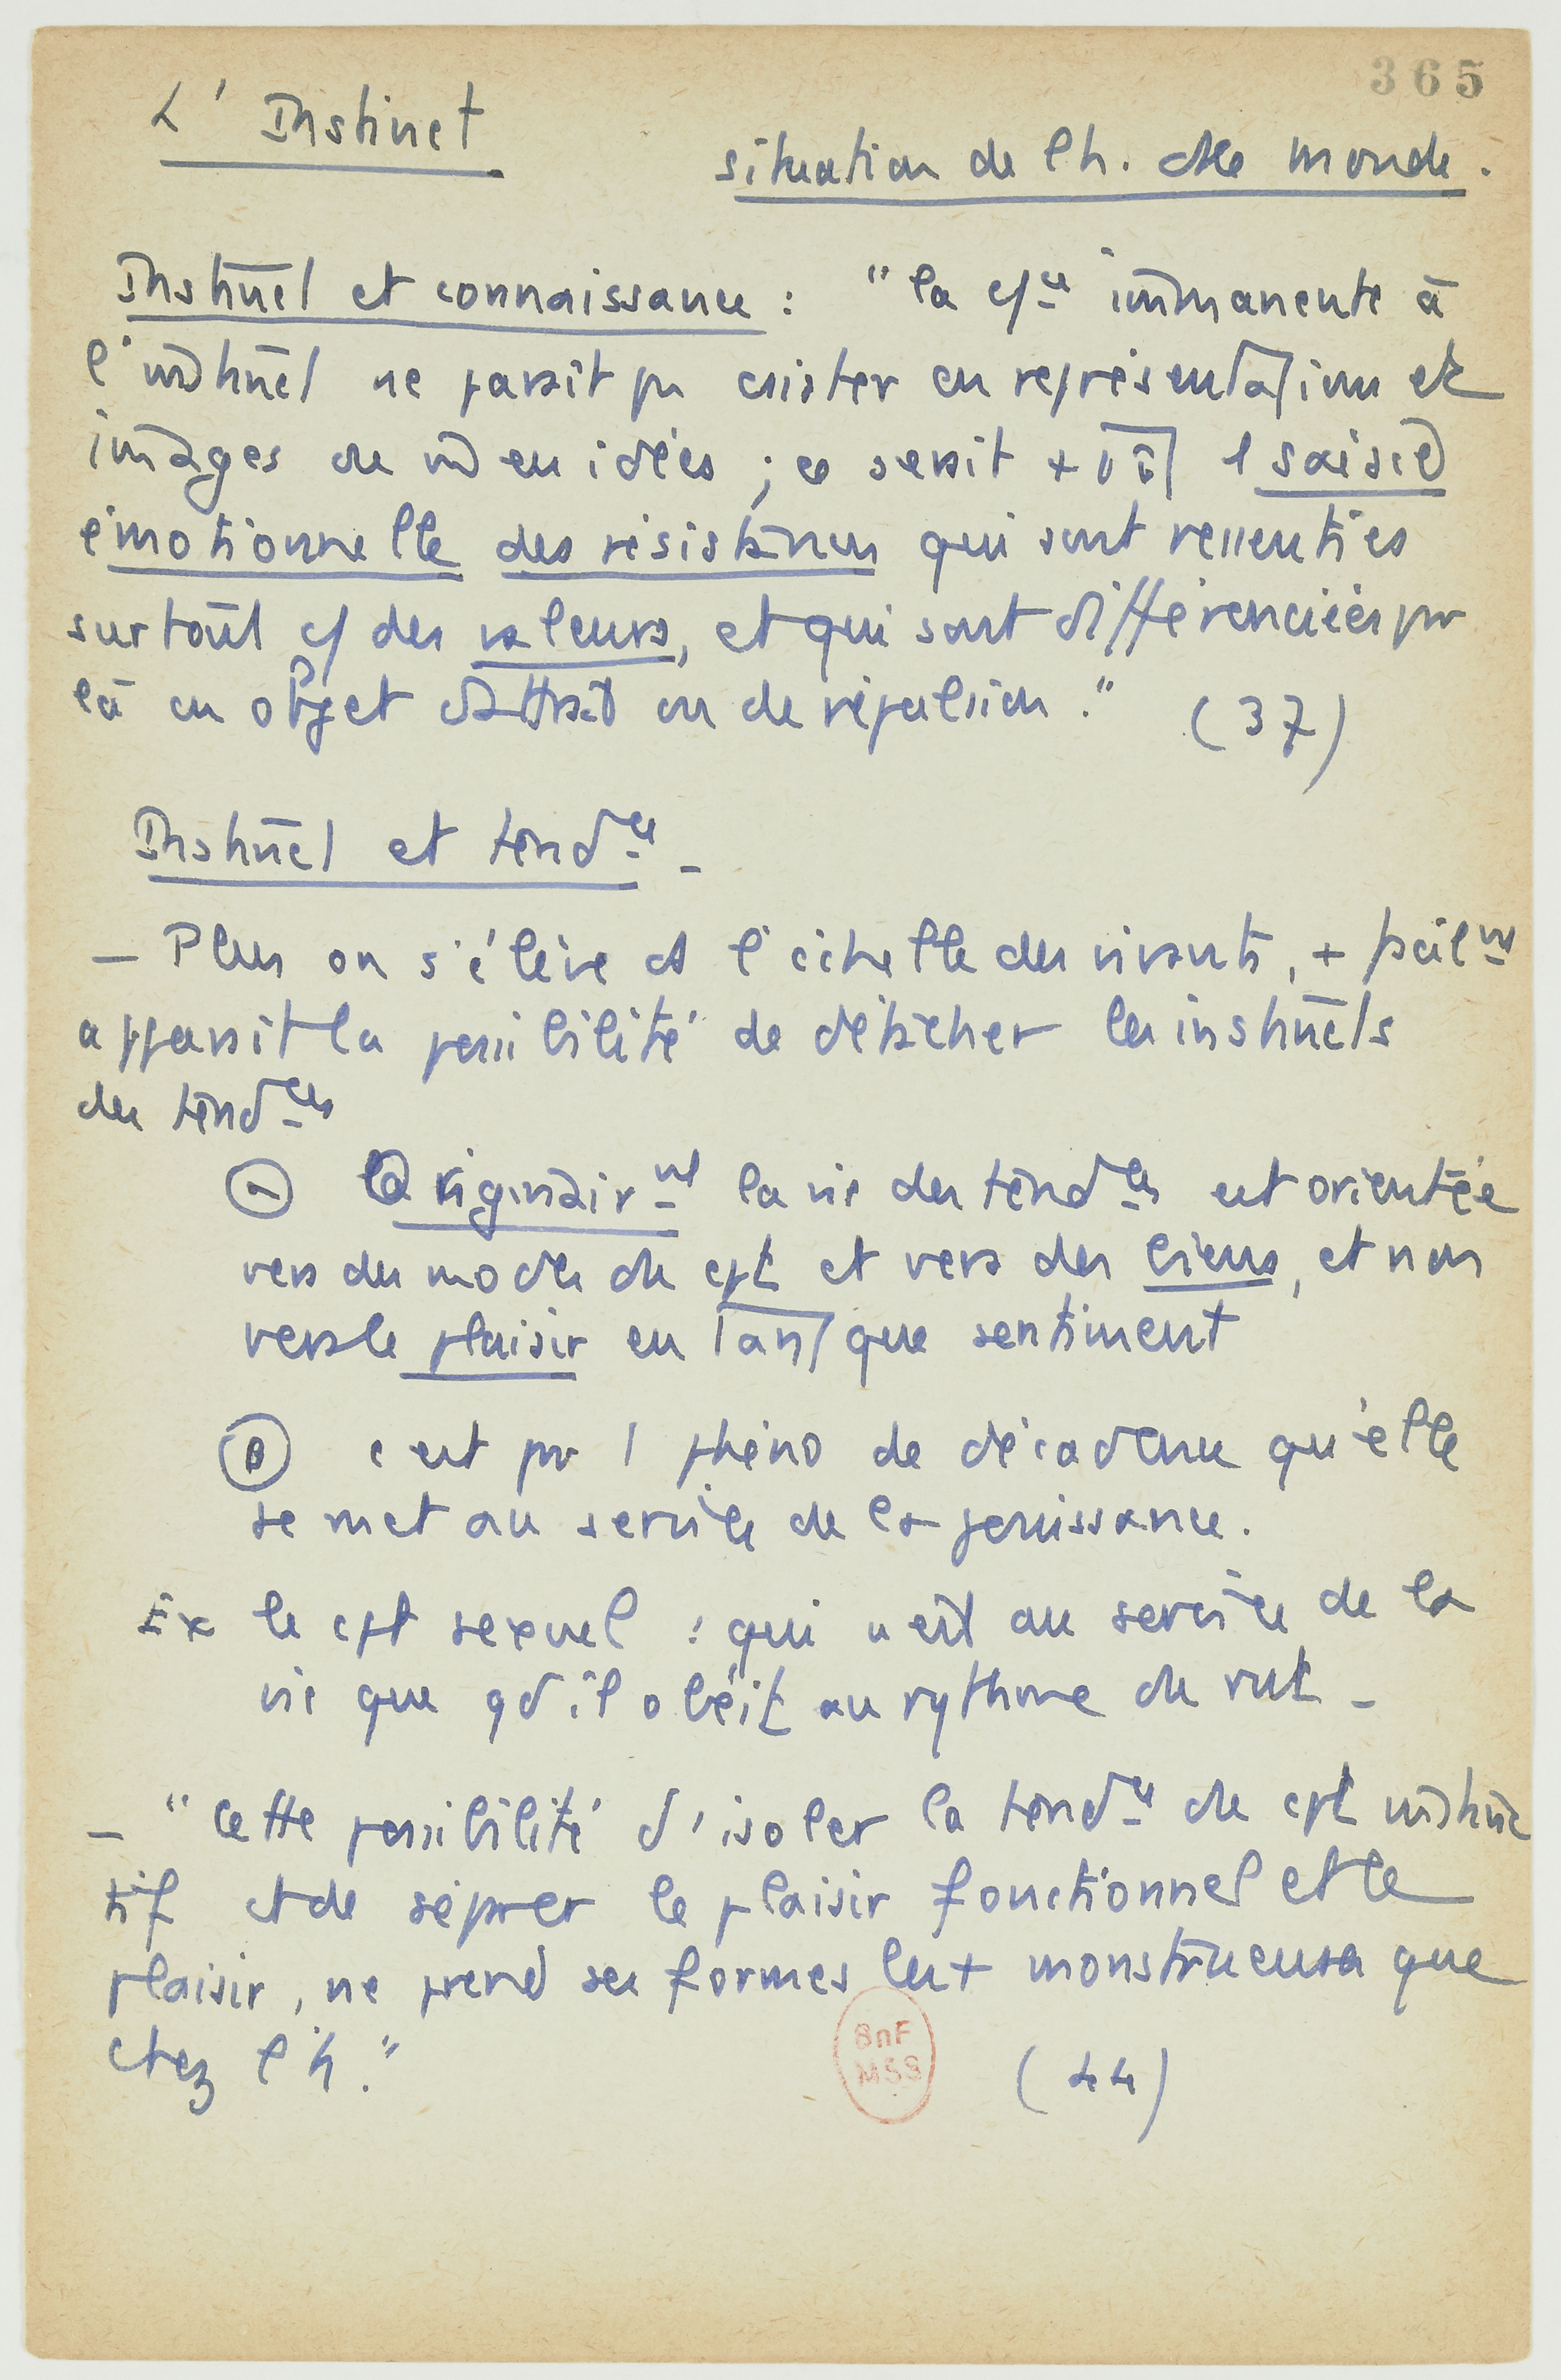 365
L'Instinct
situation de l'h. ds le monde.
Instinct et connaissance : "la c/ce immanente à
l'instinct ne paraît pas exister en représentations et
images ou m en idées ; ce serait + tôt 1 saisie
émotionnelle des résistances qui sont ressenties
surtout c/ des valeurs, et qui sont différenciées par
là en objet d'attrait ou de répulsion." (37)
Instinct et tendce -
- Plus on s'élève ds l'échelle des vivants, + facilmt
apparaît la possibilité de détacher les instincts
des tendces
(a) Originairmt la vie des tendces est orientée
vers des modes de cpt et vers des biens, et non
vers le plaisir en tant que sentiment
(B) c'est par 1 phéno de décadence qu'elle
se met au service de la jouissance.
Ex le cpt sexuel : qui n'est au service de la
vie que qd il obéit au rythme du rut -
- "Cette possibilité d'isoler la tendce du cpt instinc
tif et de séparer le plaisir fonctionnel et le
plaisir, ne prend ses formes les + monstrueuses que
chez l'h." (44)
BnF
MSS